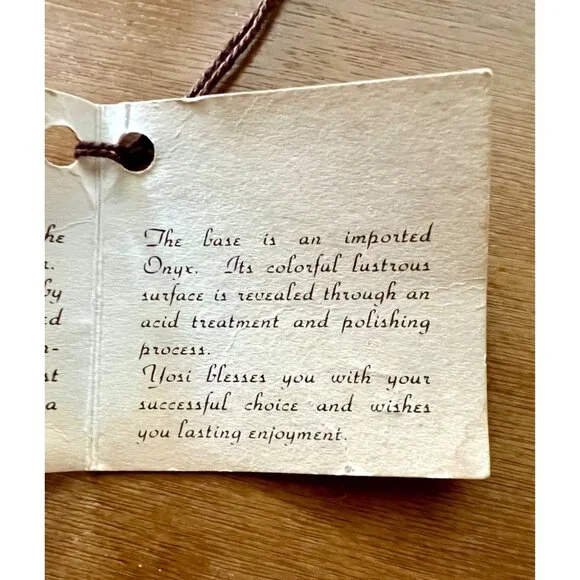 he
r.
by
d
n-
st
a
The base is an imported
Onyx. Its colorful lustrous
surface is revealed through an
acid treatment and polishing
process.
Yosi blesses you with your
successful choice and wishes
you lasting enjoyment.